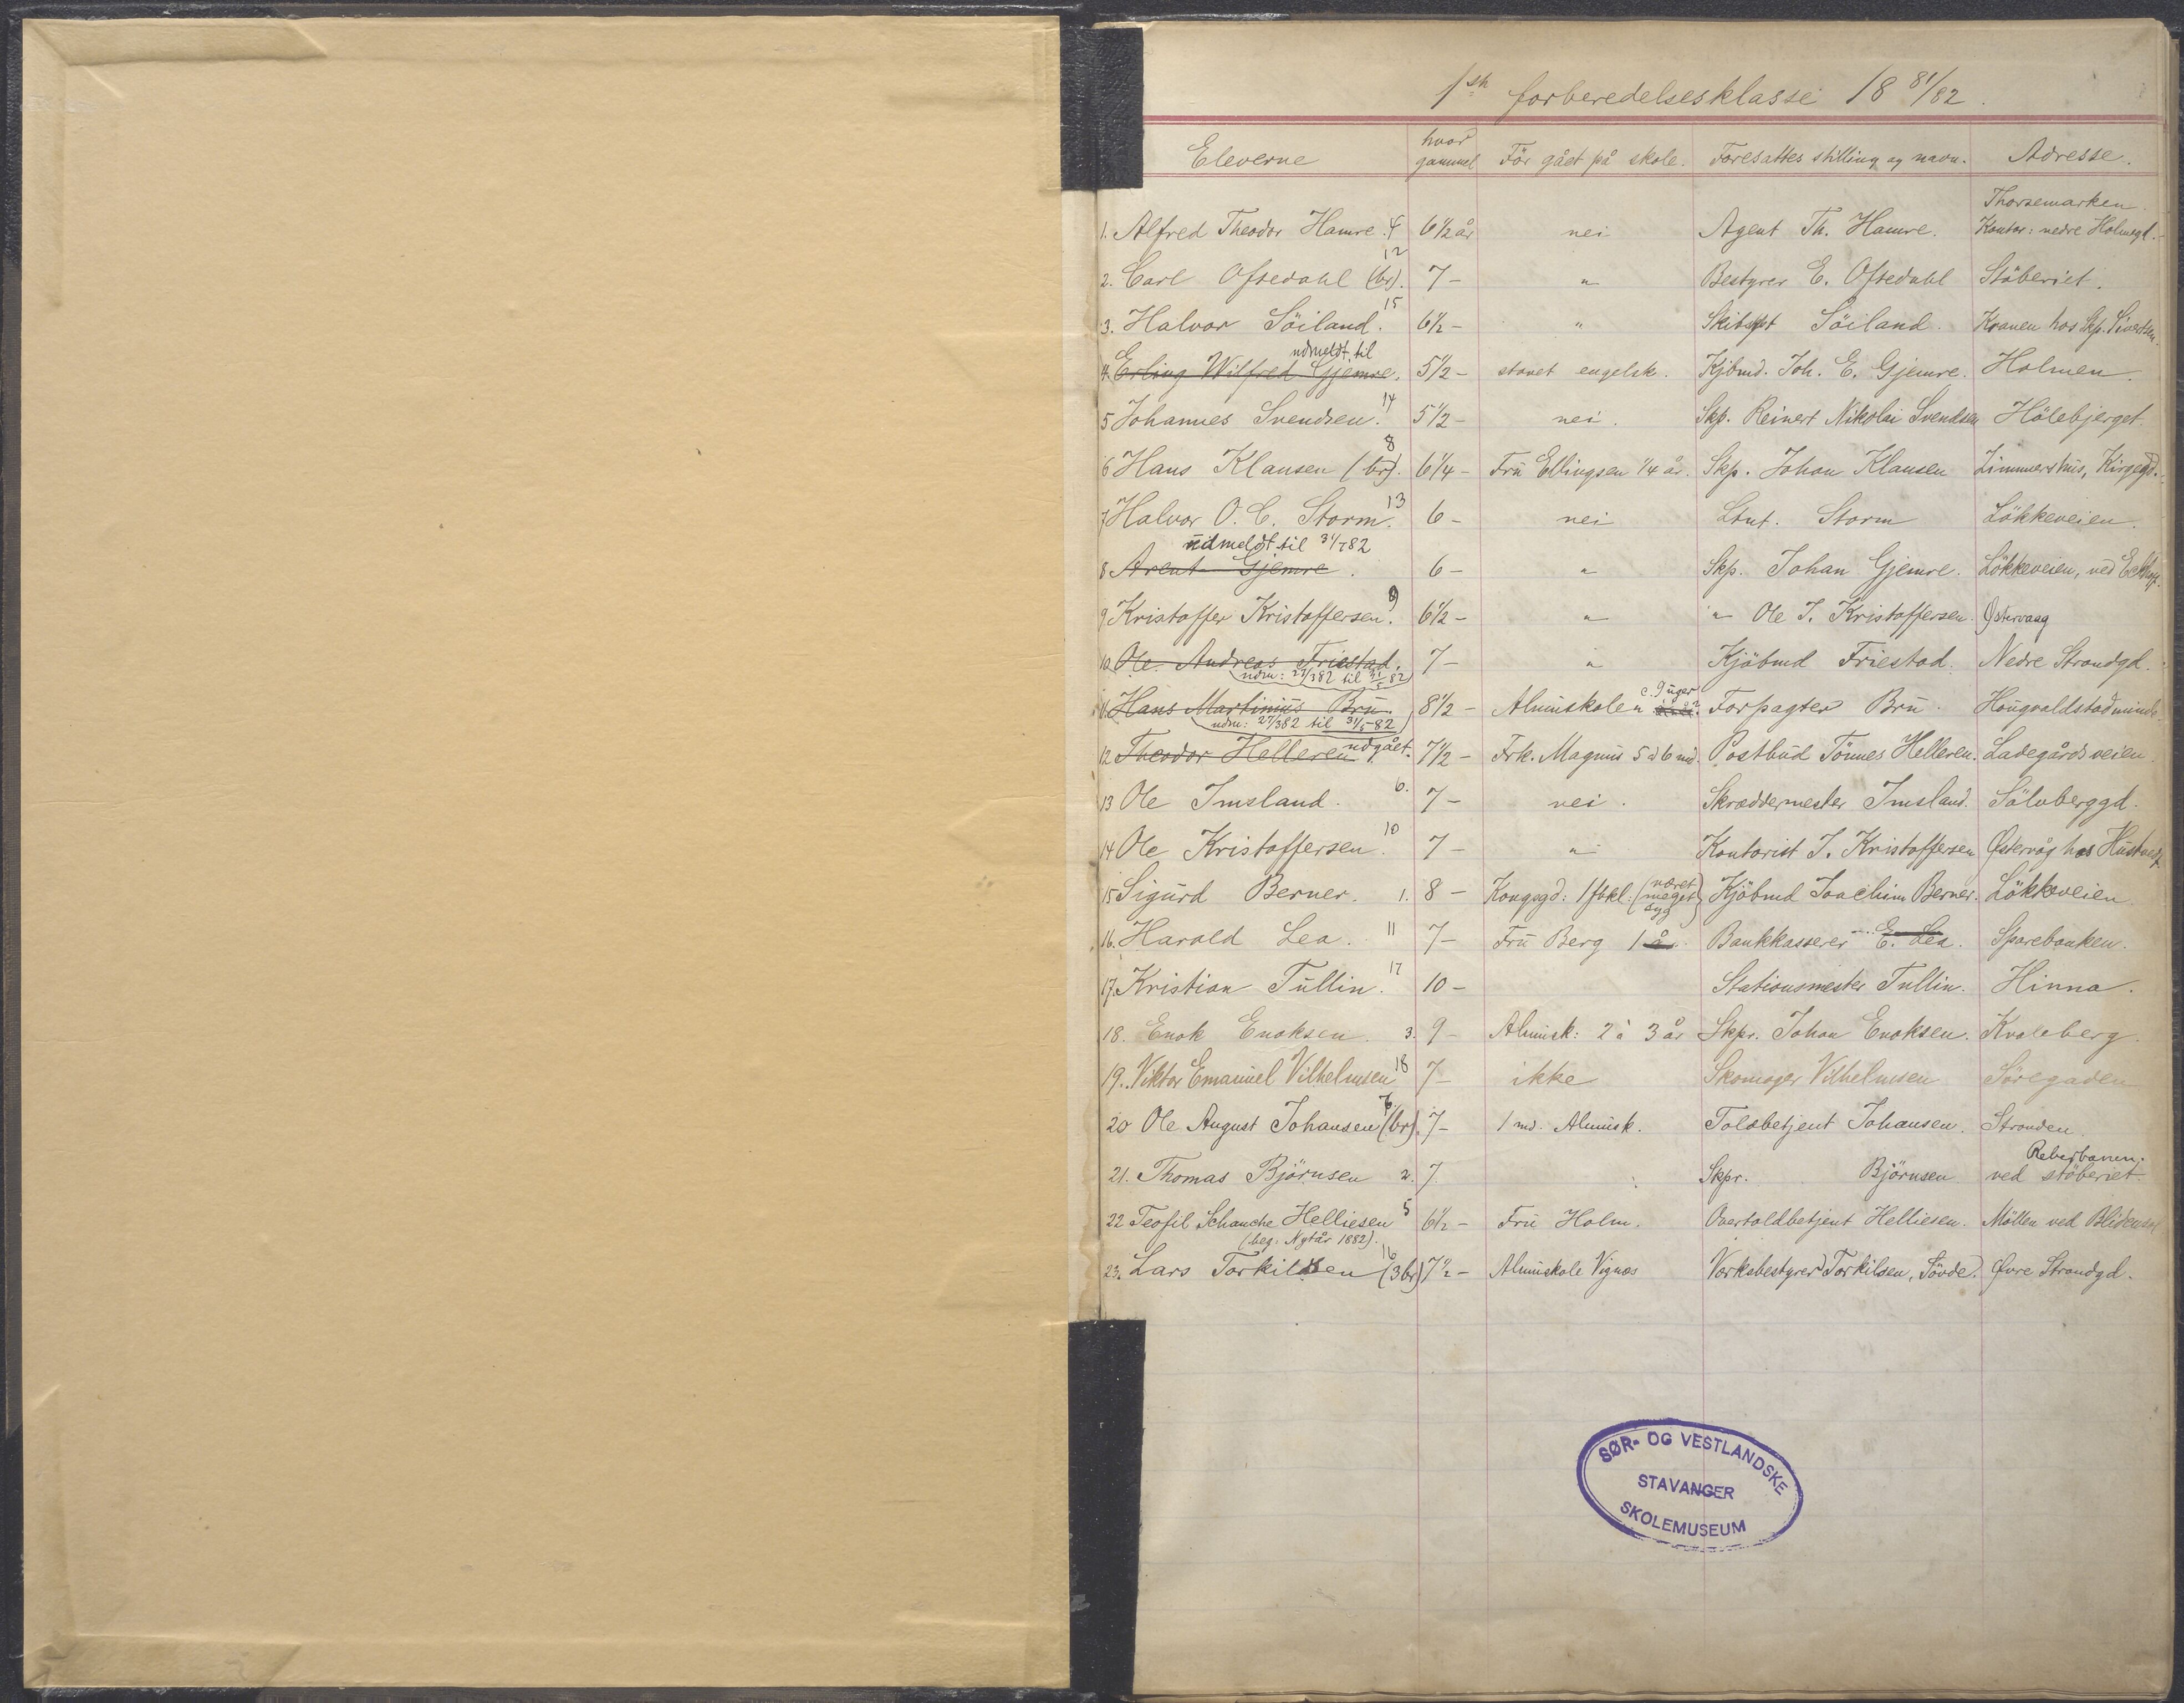 1ste forberedelsesklasse 18 81/82.
Eleverne hvor gammel För gået på skole. Foresattes stilling og navn. Adresse.
Thorsemarken.
1. Alfred Theodor Hamre. 4 6 1/2 år nei Agent Th. Hamre. Kontor: nedre Holmegd.
2. Carl Ofstedahl (br). 12 7 - " Bestyrer E. Ofstedahl Stöberiet.
3. Halvor Söiland. 15 6 1/2 - " Söiland. Kranen hos Skp. Sivertsen.
udmeldt til
4. Erling Wilfred Gjemre. 5 1/2 - stavet engelsk. Kjöbmd. Joh. E. Gjemre. Holmen.
5 Johannes Svendsen. 14 5 1/2 - nei. Skp. Reinert Nikolai Svendsen Hölebjerget.
6 Hans Klausen (br). 8 6 1/4 - Fru Ellingsen 1/4 år. Skp. Johan Klausen Zimmershus, Kirgegd.
7 Halvor O. C. Storm. 13 6 - nei Ltnt. Storm Lökkeveien.
udmeldt til 31/1 82
8 Arent Gjemre. 6 - " Skp. Johan Gjemre. Lökkeveien, ved
9 Kristoffer Kristoffersen. 9 6 1/2 - " " Ole J. Kristoffersen. Østervaag
10. Ole Andreas Friestad. 7 - " Kjöbmd Friestad. Nedre Strandgd.
udm: 27/3 82 til 31/5 82
c. 9 uger
11. Hans Martinius Bru. 8 1/2 - Almuskolen Forpagter Bru. Hougvaldstadminde
udm: 27/3 82 til 31/5 - 82
12 Theodor Helleren udgået. 7 1/2 - Frk. Magnus 5 à 6 md. Postbud Tönnes Helleren. Ladegårdsveien.
13 Ole Imsland. 6. 7 - nei. Skræddermester Imsland. Sölvberggd.
14 Ole Kristoffersen. 10 7 - " Kontorist J. Kristoffersen Østervåg hos
15 Sigurd Berner. 1. 8 - Kongsgd: 1 fbkl. (været meget syg) Kjöbmd Joachim Berner. Lökkeveien.
16. Harald Lea. 11 7 - Fru Berg 1 å. Bankkasserer E. Lea. Sparebanken.
17. Kristian Tullin. 17 10 - Stationsmester Tullin. Hinna.
18. Enok Enoksen. 3. 9 - Almusk: 2 à 3 år Skpr. Johan Enoksen. Kvaleberg.
19. Viktor Emanuel Vilhelmsen 18 7 - ikke Skomager Vilhelmsen Söregaden
20 Ole August Johansen (br). 7. 7 - 1 md. Almusk. Toldbetjent Johansen. Stranden.
Reberbanen.
21. Thomas Björnsen 2. 7. Skpr. Björnsen ved stöberiet.
22 Teofil Schanche Helliesen 5 6 1/2 - Fru Holm. Overtoldbetjent Helliesen. Möllen ved
(beg: Nytår 1882).
23. Lars Torkildsen (3 br) 16 7 1/2 - Almuskole Vignæs Værksbestyrer Torkilsen, Sövde. Øvre Strandgd.
SØR- OG VESTLANDSKE
STAVANGER
SKOLEMUSEUM